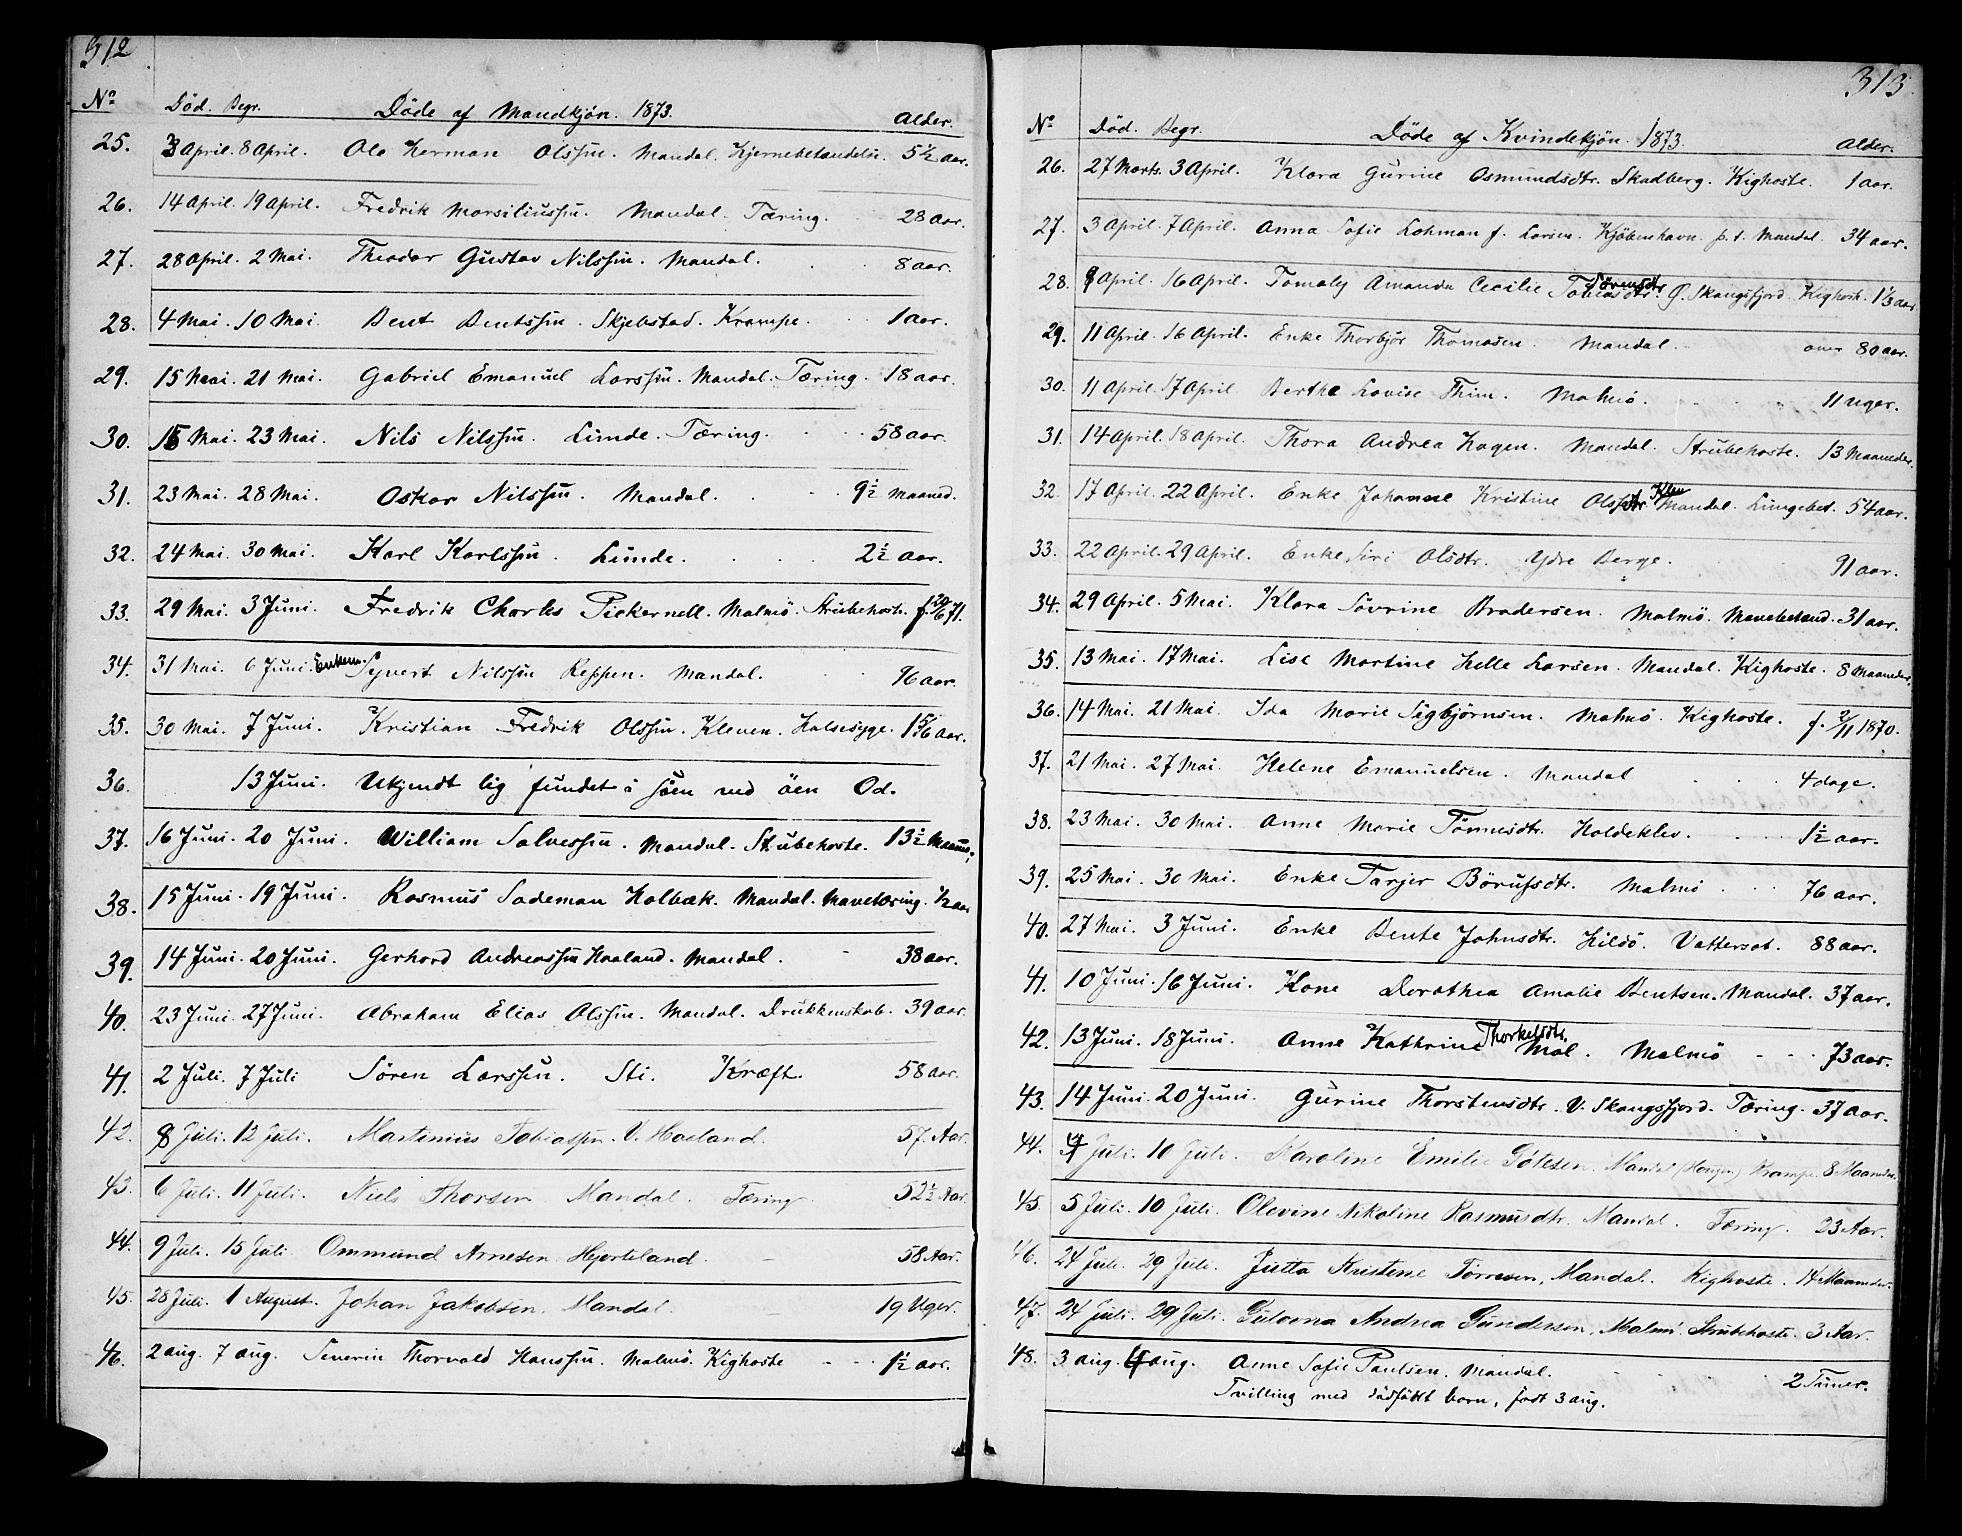 312
No Död. Begr. Döde af Mandkjön. 1873. Alder.
25. 3 April. 8 April. Ole Herman Olssøn. Mandal. Hjernebetændelse. 5½ aar.
26. 14 April. 19 April. Fredrik Marsiliussøn. Mandal. Tæring. 28 aar.
27. 28 April. 2 Mai. Theodor Gustav Nilssøn. Mandal. 8 aar.
28. 4 Mai. 10 Mai. Bent Bentssøn. Skjebstad. Krampe. 1 aar.
29. 15 Mai. 21 Mai. Gabriel Emanuel Larssøn. Mandal. Tæring. 18 aar.
30. 15 Mai. 23 Mai. Nils Nilssøn. Lunde. Tæring. 58 aar.
31. 23 Mai. 28 Mai. Oskar Nilssøn. Mandal. 9½ maaned.
32. 24 Mai. 30 Mai. Karl Karlssøn. Lunde. 2½ aar.
33. 29 Mai. 3 Juni. Fredrik Charles Pickernell. Malmö. Strubehoste. f. 20/6 71.
34. 31 Mai. 6 Juni. Enkem. Syvert Nilssøn Reppen. Mandal. 96 aar.
35. 30 Mai. 7 Juni. Kristian Fredrik Olssøn. Kleven. Halssyge. 1 5/6 aar.
36. 13 Juni. Ukjendt lig fundet i søen ved öen Od.
37. 16 Juni. 20 Juni. William Salvessøn. Mandal. Stubehoste. 13½ Maaned.
38. 15 Juni. 19 Juni. Rasmus Sodeman Holbæk. Mandal. Mavetæring. ½ aar
39. 14 Juni. 20 Juni. Gerhard Andreassøn Haaland. Mandal. 38 aar.
40. 23 Juni. 27 Juni. Abraham Elias Olssøn. Mandal. Drukkenskab. 39 aar.
41. 2 Juli. 7 Juli Sören Larssøn. Sti. Kræft. 58 aar.
42. 8 Juli. 12 Juli. Martinius Tobiassøn. V. Haaland. 57. Aar.
43. 6 Juli. 11 Juli. Niels Thorsen Mandal. Tæring 52½ Aar.
44. 9 Juli. 15 Juli. Ommund Arnesen Hjorteland. 58 Aar.
45. 28 Juli. 1 August. Johan Jakobsen. Mandal. 19 Uger.
46. 2 aug. 7 aug. Severin Thorvald Hanssøn. Malmö. Kighoste 1½ aar.
313.
No Död. Begr. Döde af Kvindekjön. 1873. Alder.
26. 27 Marts. 3 April. Klara Gurine Osmundsdtr. Skadberg. Kighoste. 1 aar.
27. 3 April. 7 April. Anna Sofie Lohman f. Larsen. Kjöbenhavn. p. t. Mandal. 34 aar.
Sörensdtr
28. 9 April. 16 April. Tomaly Amanda Cecilie Tobiasdtr. Ö. Skougsfjord. Kighost. 1⅓ aar.
29. 11 April. 16 April. Enke Thorbjör Thomasen. Mandal. over 80 aar.
30. 11 April. 17 April. Berthe Lovise Thim. Malmö. 11 uger.
31. 14 April. 18 April. Thora Andrea Hagen. Mandal. Strubehoste. 13 Maaneder.
32. 17 April. 22 April. Enke Johanne Kristine Olsdtr Klev Mandal. Lungebet. 54 aar.
33. 22 April. 29 April. Enke Siri Olsdtr. Ydre Berge. 91 aar.
34. 29 April. 5 Mai. Klara Sövrine Brodersen. Malmö. Mavebetænd. 31 aar.
35. 13 Mai. 17 Mai. Lise Martine Helle Larsen. Mandal. Kighoste. 8 Maaneder.
36. 14 Mai. 21 Mai. Ida Marie Sigbjörnsen. Malmö. Kighoste. f. 2/11 1870.
37. 21 Mai. 27 Mai. Helene Emanuelsen. Mandal 4 dage.
38. 23 Mai. 30 Mai. Anne Marie Tönnesdtr. Holdeklev. 1½ aar.
39. 25 Mai. 30 Mai. Enke Tarjer Börufsdtr. Malmö. 76 aar.
40. 27 Mai. 3 Juni. Enke Bente Johnsdtr. Hildö. Vattersot. 88 aar.
41. 10 Juni. 16 Juni. Kone Dorothea Amalie Bentsen. Mandal. 37 aar.
Thorkelsdtr.
42. 13 Juni. 18 Juni. Anne Kathrine Mol. Malmö 73 aar.
43. 14 Juni. 20 Juni. Gurine Thorstensdtr. V. Skougsfjord. Tæring. 37 aar.
44. 4 Juli. 10 Juli. Karoline Emilie Götesen. Mandal Krampe. 8 Maaneder.
45. 5 Juli. 10 Juli. Olevine Nikoline Rasmusdtr. Mandal. Tæring. 23 Aar.
46. 24 Juli. 29 Juli. Jutta Kristine Törresen, Mandal. Kighoste. 14 Maaneder.
47. 24 Juli. 29 Juli. Gulovna Andrea Gundersen, Malmö. Strubehoste. 3 Aar.
48. 3 aug. 4 aug. Anne Sofie Paulsen. Mandal. 2 Timer.
Tvilling med dødfødt barn, født 3 aug.